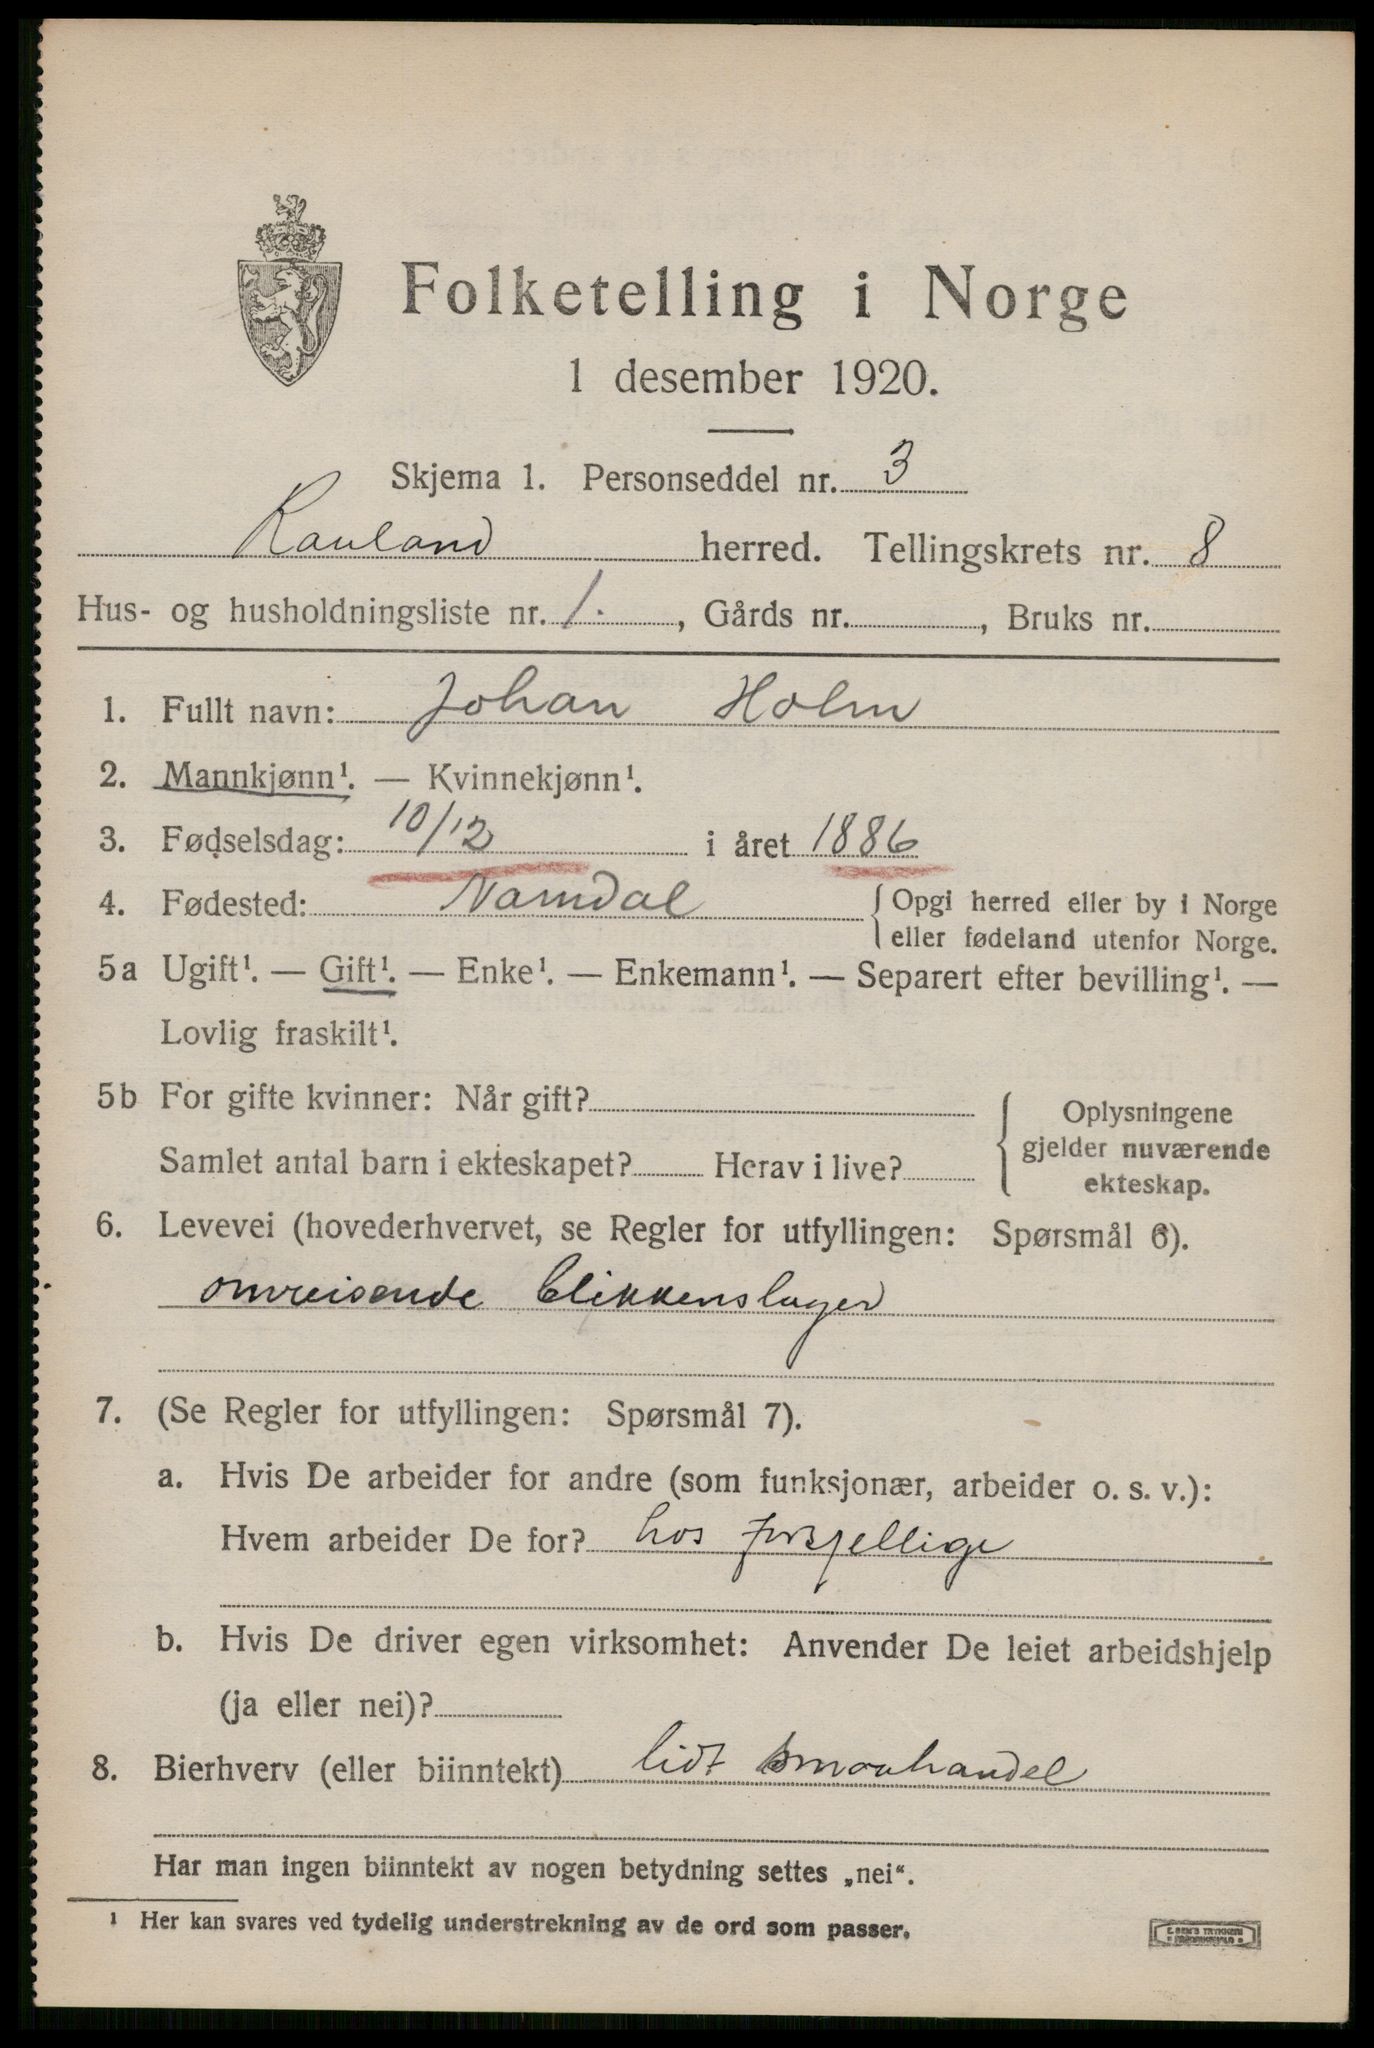 Folketelling i Norge
1 desember 1920.
Skjema 1. Personseddel nr. 3
Rauland herred. Tellingskrets nr. 8
Hus- og husholdningsliste nr. 1. , Gårds nr. , Bruks nr.
1. Fullt navn: Johan Holm
2. Mannkjønn¹. — Kvinnekjønn¹.
3. Fødselsdag: 10/12 i året 1886
4. Fødested: Namdal { Opgi herred eller by i Norge
eller fødeland utenfor Norge.
5a Ugift¹. — Gift¹. — Enke¹. — Enkemann¹. — Separert efter bevilling¹. —
Lovlig fraskilt¹.
5b For gifte kvinner: Når gift?
Samlet antal barn i ekteskapet? Herav i live?
{ Oplysningene
gjelder nuværende
ekteskap.
6. Levevei (hovederhvervet, se Regler for utfyllingen: Spørsmål 6).
omreisende blikkenslager
7. (Se Regler for utfyllingen: Spørsmål 7).
a. Hvis De arbeider for andre (som funksjonær, arbeider o. s. v.):
Hvem arbeider De for? hos forsjellige
b. Hvis De driver egen virksomhet: Anvender De leiet arbeidshjelp
(ja eller nei)?
8. Bierhverv (eller biinntekt) lidt smaahandel
Har man ingen biinntekt av nogen betydning settes „nei“.
¹ Her kan svares ved tydelig understrekning av de ord som passer.